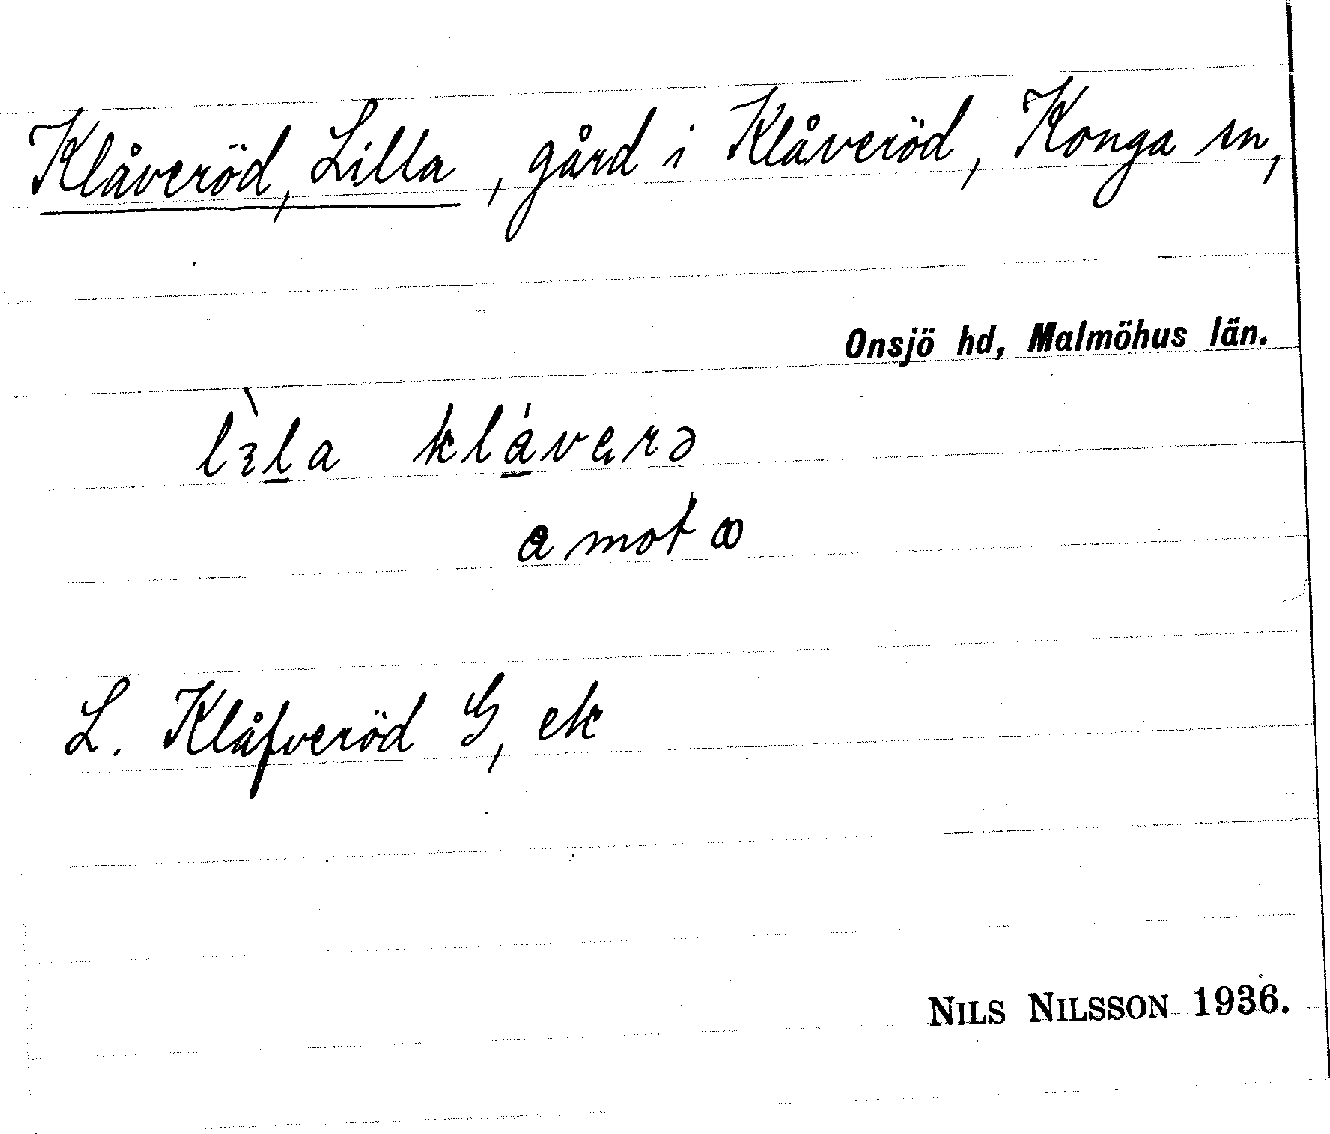 Klåveröd, Lilla, gård i Klåveröd, Konga sn,
Onsjö hd, Malmöhus län.
lìla klávarə
a mot ꝏ
L. Klåfveröd G, ek
NILS NILSSON 1936.